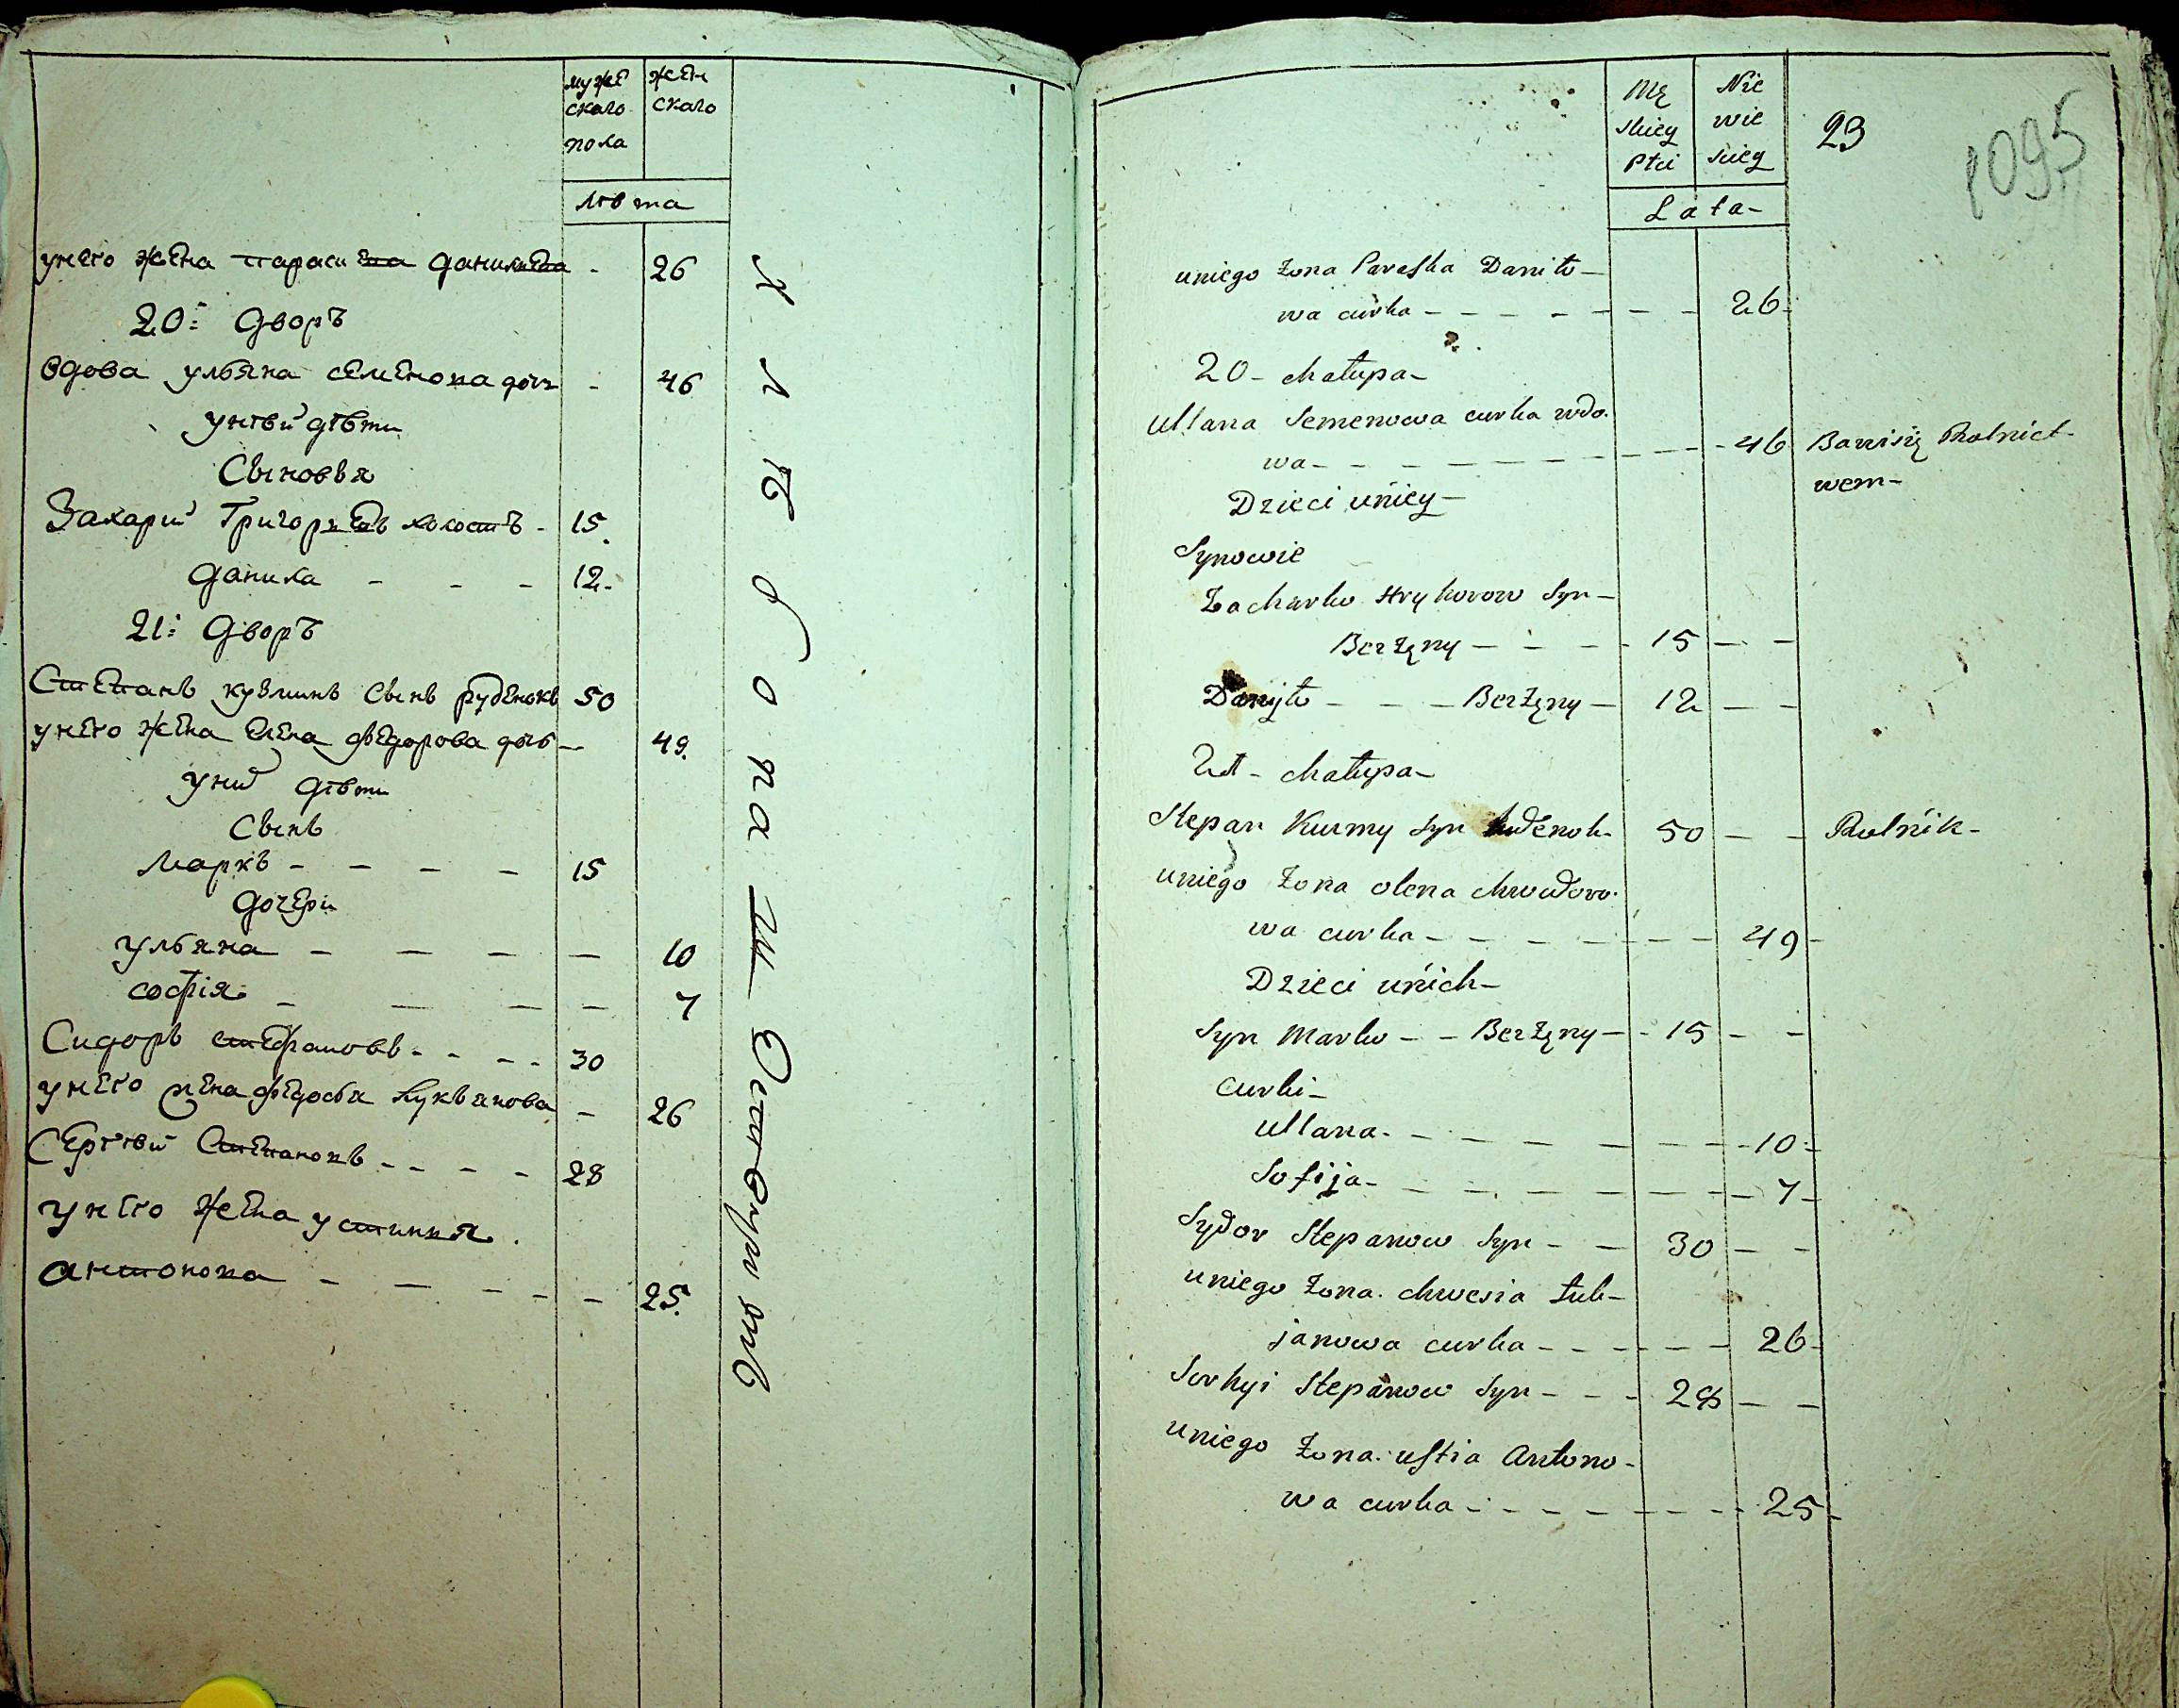 муже
скаго
пола
жен
скаго
лѣта
унего жена Параски ева данилова - 26
20: дворъ
вдова ульяна семенова дочь - 46
унѣй дѣти
Сыновья
Захарий Григорьевъ холостъ - 15.
данила - - - 12.
21: дворъ
Степанъ кузминъ сынъ руденокъ 50
унего жена елена федорова дочь - 49.
уних дѣти
Сынъ
Маркъ - - - - 15
дочери
ульяна - - - - 10
софия - - - - 7
Сидоръ степановъ - - - - 30
унего жена федосья Лукьянова - 26
Сергѣй Степановъ - - - - 28
унего жена устинья.
антонова - - - - - 25.
Mę
skiey
Płci
Nie
wie
sciey
Lata-
23
1095
uniego żona Paraska Daniło-
wa curka - - - - - - - 26-
20- chałupa-
Ullana Semenowa curka wdo-
wa - - - - - - - - - 46 Bawi się Rolnict-
wem-
Dzieci uniey-
Synowie
Zacharko Hryhorow Syn-
Berżęny - - - - 15 - -
Danyło - - - Berżęny - 12 - -
21- chałupa-
Stepan Kuzmy Syn Rudenok- 50 - - Rolnik-
uniego żona olena chwedoro-
wa curka - - - - - - - 49-
Dzieci unich-
Syn Marko - - Berżęny - - 15 - -
curki-
Ullana - - - - - - - 10-
Sofija - - - - - - - 7-
Sydor Stepanow Syn - - 30 - -
uniego żona chwesia Łuk-
janowa curka - - - - - 26-
Serhyi Stepanow Syn - - - 28 - -
uniego żona Ustia Antono-
wa curka - - - - - - - 25-